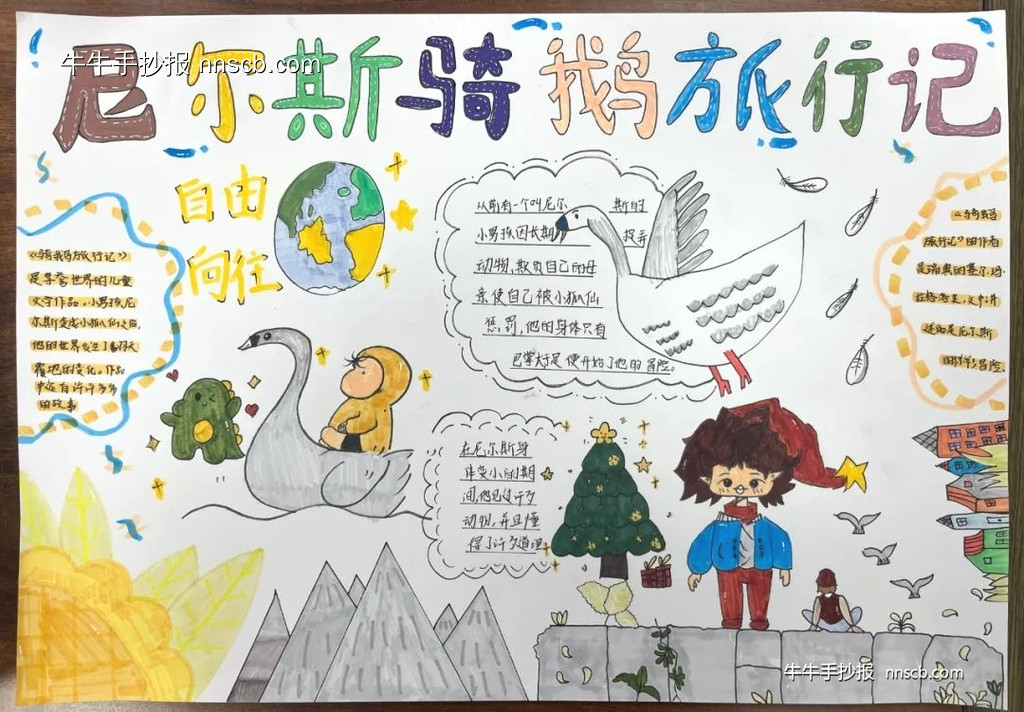 牛牛手抄报 nnscb.com
尼尔斯骑鹅旅行记
自由
向往
《骑鹅旅行记》
是享誉世界的儿童
文学作品,小男孩尼
尔斯变成小狐仙之后,
他的世界发生了翻天
覆地的变化,作品
中还有许许多多
的故事
从前有一个叫尼尔斯的
小男孩因长期捉弄
动物,欺负自己的母
亲使自己被小狐仙
惩罚,他的身体只有
巴掌大于是便开始了他的冒险。
《骑鹅
旅行记》的作者
是瑞典的塞尔玛·
拉格洛芙,文中讲
述的是尼尔斯
的冒险。
在尼尔斯身
体变小的期
间,他见过许多
动物,并且懂
得了许多道理
牛牛手抄报 nnscb.com